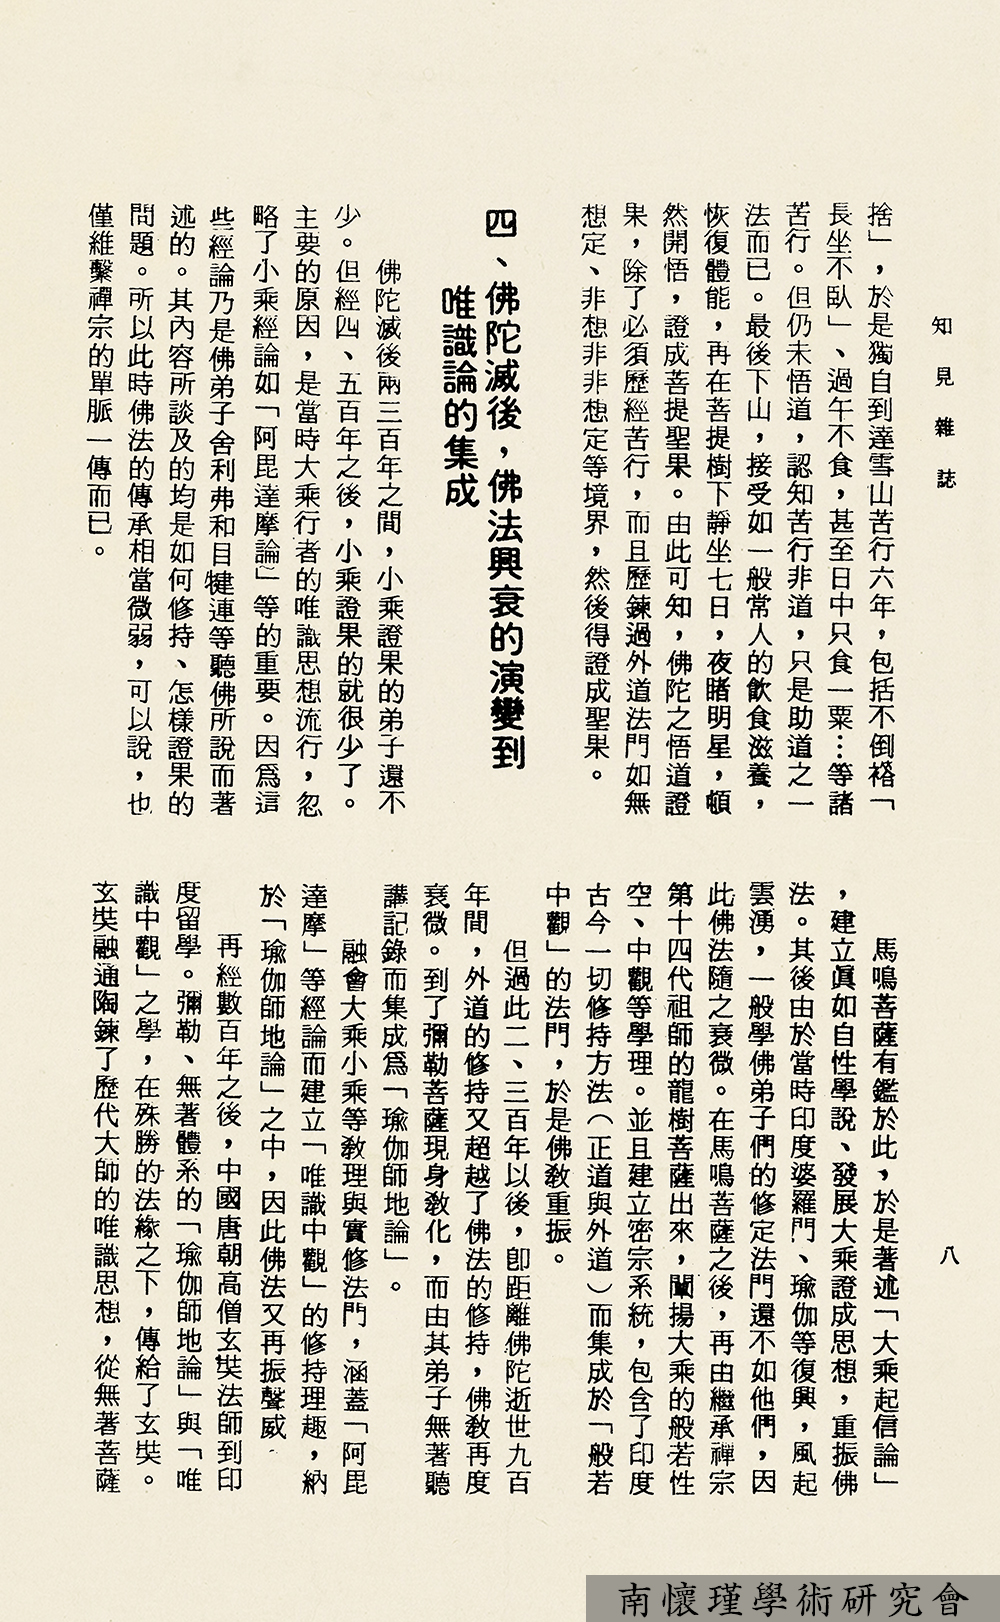 知見雜誌
八
捨」，於是獨自到達雪山苦行六年，包括不倒褡「
長坐不臥」、過午不食，甚至日中只食一粟…等諸
苦行。但仍未悟道，認知苦行非道，只是助道之一
法而已。最後下山，接受如一般常人的飲食滋養，
恢復體能，再在菩提樹下靜坐七日，夜睹明星，頓
然開悟，證成菩提聖果。由此可知，佛陀之悟道證
果，除了必須歷經苦行，而且歷鍊過外道法門如無
想定、非想非非想定等境界，然後得證成聖果。
四、佛陀滅後，佛法興衰的演變到
唯識論的集成
佛陀滅後兩三百年之間，小乘證果的弟子還不
少。但經四、五百年之後，小乘證果的就很少了。
主要的原因，是當時大乘行者的唯識思想流行，忽
略了小乘經論如「阿毘達摩論」等的重要。因爲這
些經論乃是佛弟子舍利弗和目犍連等聽佛所說而著
述的。其內容所談及的均是如何修持、怎樣證果的
問題。所以此時佛法的傳承相當微弱，可以說，也
僅維繫禪宗的單脈一傳而已。
馬鳴菩薩有鑑於此，於是著述「大乘起信論」
，建立眞如自性學說、發展大乘證成思想，重振佛
法。其後由於當時印度婆羅門、瑜伽等復興，風起
雲湧，一般學佛弟子們的修定法門還不如他們，因
此佛法隨之衰微。在馬鳴菩薩之後，再由繼承禪宗
第十四代祖師的龍樹菩薩出來，闡揚大乘的般若性
空、中觀等學理。並且建立密宗系統，包含了印度
古今一切修持方法（正道與外道）而集成於「般若
中觀」的法門，於是佛教重振。
但過此二、三百年以後，卽距離佛陀逝世九百
年間，外道的修持又超越了佛法的修持，佛教再度
衰微。到了彌勒菩薩現身教化，而由其弟子無著聽
講記錄而集成爲「瑜伽師地論」。
融會大乘小乘等教理與實修法門，涵蓋「阿毘
達摩」等經論而建立「唯識中觀」的修持理趣，納
於「瑜伽師地論」之中，因此佛法又再振聲威、
再經數百年之後，中國唐朝高僧玄奘法師到印
度留學。彌勒、無著體系的「瑜伽師地論」與「唯
識中觀」之學，在殊勝的法緣之下，傳給了玄奘。
玄奘融通陶鍊了歷代大師的唯識思想，從無著菩薩
南懷瑾學術研究會